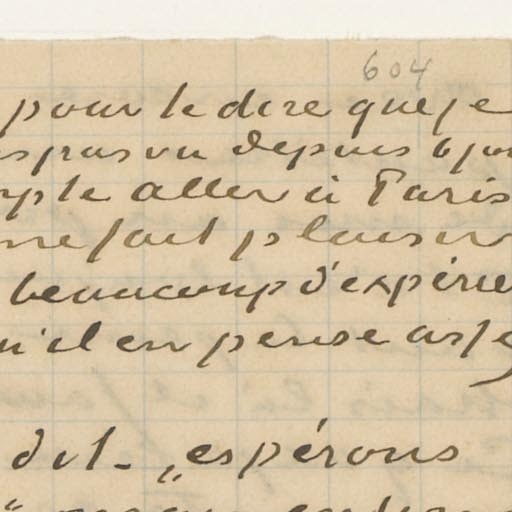 604
pour te dire que je
pas vu depuis 6 jou
mpte aller à Paris
me fait plaisir
beaucoup d'expérie
u'il en pense asse
dit - „espérons